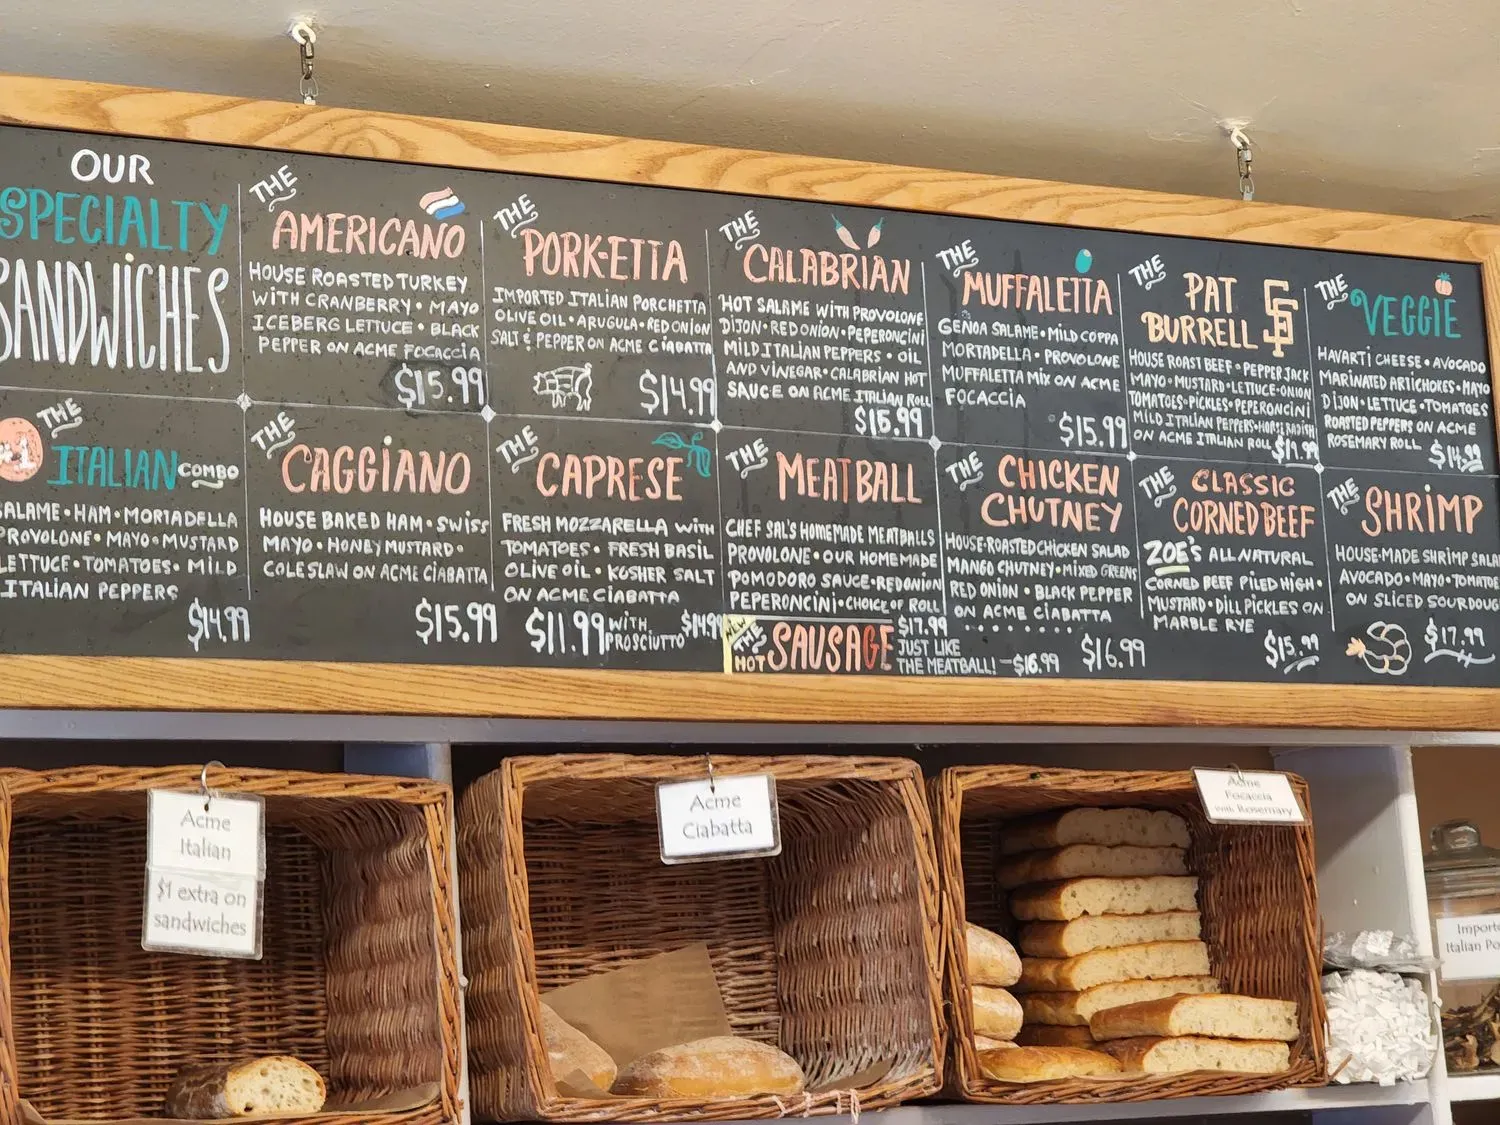 OUR
SPECIALTY
SANDWICHES
THE
AMERICANO
HOUSE ROASTED TURKEY
WITH CRANBERRY • MAYO
ICEBERG LETTUCE • BLACK
PEPPER ON ACME FOCACCIA
$15.99
THE
PORK-ETTA
IMPORTED ITALIAN PORCHETTA
OLIVE OIL • ARUGULA • RED ONION
SALT & PEPPER ON ACME CIABATTA
$14.99
THE
CALABRIAN
HOT SALAME WITH PROVOLONE
DIJON • RED ONION • PEPERONCINI
MILD ITALIAN PEPPERS • OIL
AND VINEGAR • CALABRIAN HOT
SAUCE ON ACME ITALIAN ROLL
$15.99
THE
MUFFALETTA
GENOA SALAME • MILD COPPA
MORTADELLA • PROVOLONE
MUFFALETTA MIX ON ACME
FOCACCIA
$15.99
THE
PAT
BURRELL SF
HOUSE ROAST BEEF • PEPPER JACK
MAYO • MUSTARD • LETTUCE • ONION
TOMATOES • PICKLES • PEPERONCINI
MILD ITALIAN PEPPERS • HORSERADISH
ON ACME ITALIAN ROLL
THE
VEGGIE
HAVARTI CHEESE • AVOCADO
MARINATED ARTICHOKES • MAYO
DIJON • LETTUCE • TOMATOES
ROASTED PEPPERS ON ACME
ROSEMARY ROLL
$14.99
#1
THE
ITALIAN COMBO
SALAME • HAM • MORTADELLA
PROVOLONE • MAYO • MUSTARD
LETTUCE • TOMATOES • MILD
ITALIAN PEPPERS
$14.99
THE
CAGGIANO
HOUSE BAKED HAM • SWISS
MAYO • HONEY MUSTARD •
COLESLAW ON ACME CIABATTA
$15.99
THE
CAPRESE
FRESH MOZZARELLA WITH
TOMATOES • FRESH BASIL
OLIVE OIL • KOSHER SALT
ON ACME CIABATTA
$11.99 WITH PROSCIUTTO $14.99
THE
MEATBALL
CHEF SAL'S HOMEMADE MEATBALLS
PROVOLONE • OUR HOMEMADE
POMODORO SAUCE • RED ONION
PEPERONCINI • CHOICE OF ROLL
$17.99
NEW
THE
HOT SAUSAGE
JUST LIKE
THE MEATBALL! - $16.99
THE
CHICKEN
CHUTNEY
HOUSE-ROASTED CHICKEN SALAD
MANGO CHUTNEY • MIXED GREENS
RED ONION • BLACK PEPPER
ON ACME CIABATTA
$16.99
THE
CLASSIC
CORNED BEEF
ZOE'S ALL NATURAL
CORNED BEEF PILED HIGH •
MUSTARD • DILL PICKLES ON
MARBLE RYE
$15.99
THE
SHRIMP
HOUSE-MADE SHRIMP SALA
AVOCADO • MAYO • TOMATOE
ON SLICED SOURDOUG
$17.99
Acme
Italian
$1 extra on
sandwiches
Acme
Ciabatta
Acme
Focaccia
with Rosemary
Importe
Italian Po